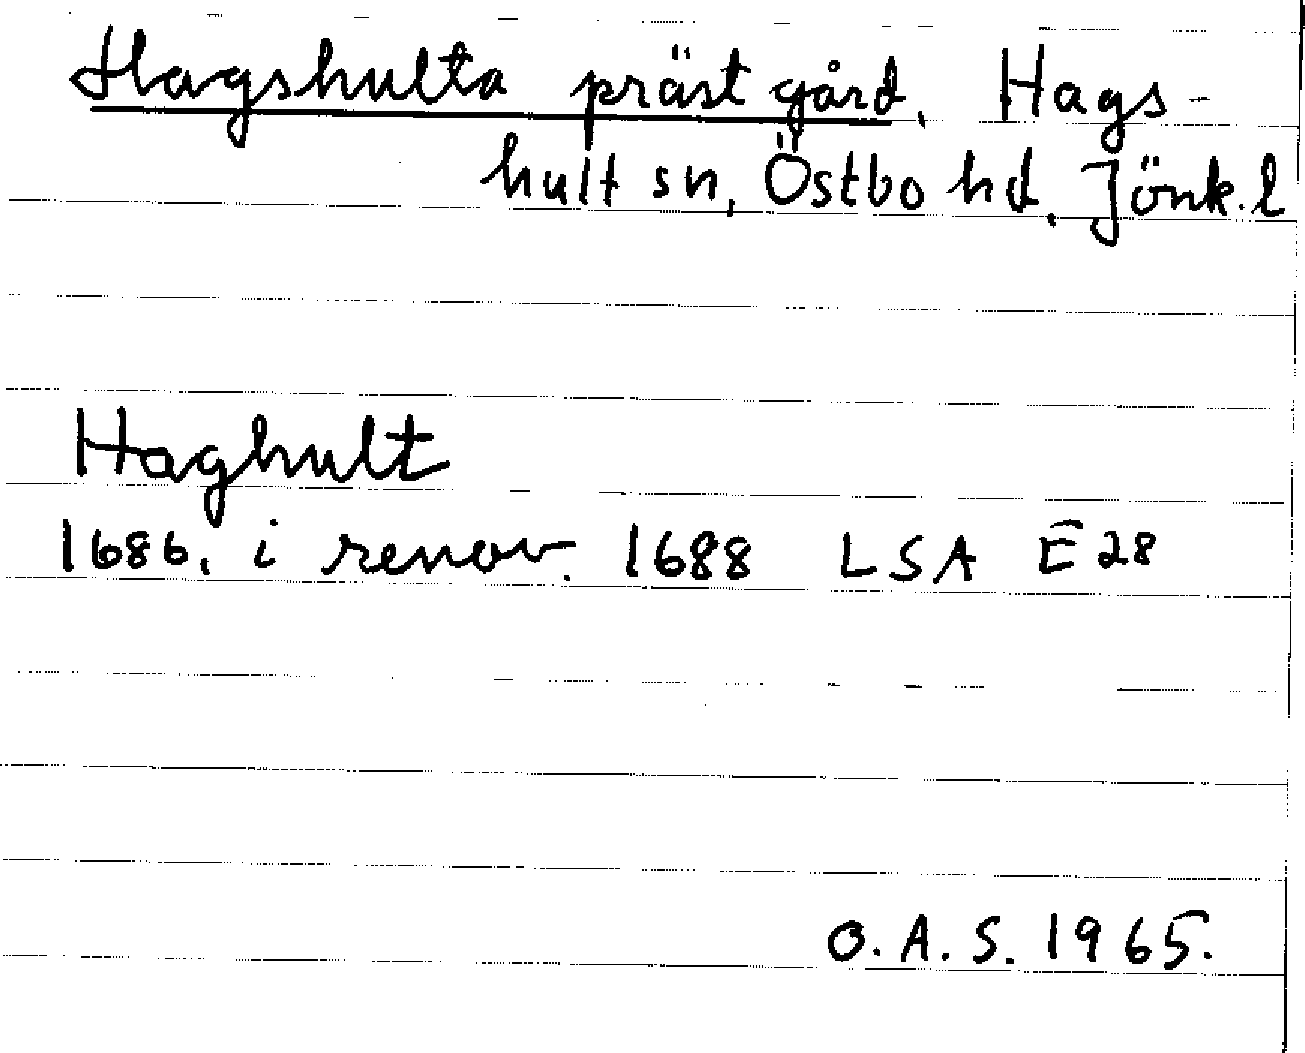 Hagshulta prästgård, Hags-
hult sn, Östbo hd, Jönk.l
Haghult
1686, i renov. 1688 LSA E28
O.A.S. 1965.